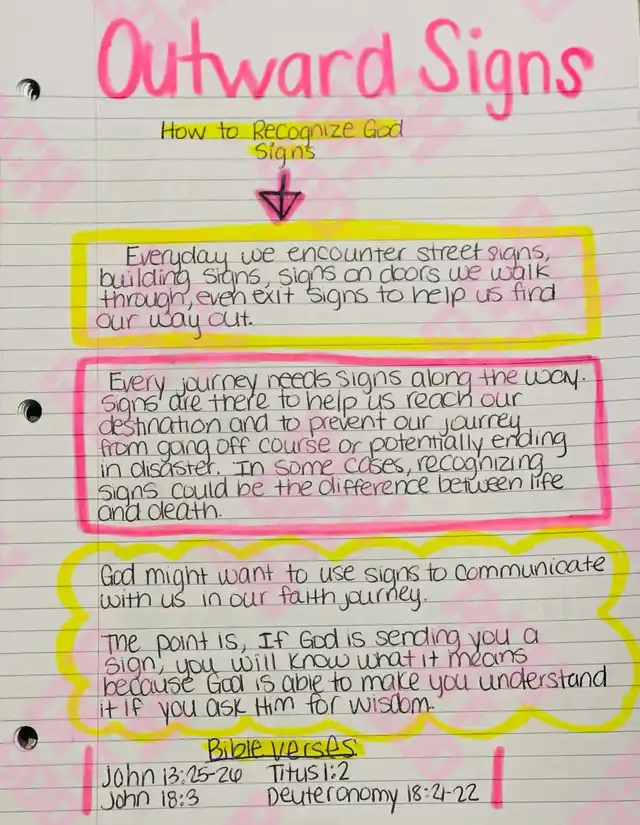 Outward Signs
How to Recognize God
Signs
Everyday we encounter street signs,
building signs, signs on doors we walk
through, even exit signs to help us find
our way out.
Every journey needs signs along the way.
Signs are there to help us reach our
destination and to prevent our journey
from going off course or potentially ending
in disaster. In some cases, recognizing
signs could be the difference between life
and death.
God might want to use signs to communicate
with us in our faith journey.
The point is, If God is sending you a
sign, you will know what it means
because God is able to make you understand
it if you ask Him for wisdom.
Bible verses:
John 13:25-26 Titus 1:2
John 18:3 Deuteronomy 18:21-22